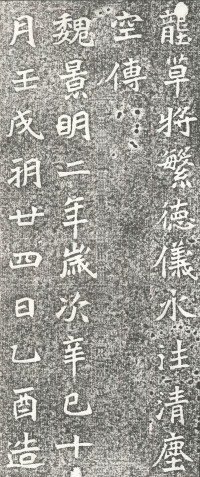 壟草將繁德儀永注清塵
空傳
魏景明二年歲次辛巳十
月壬戌朔廿四日乙酉造